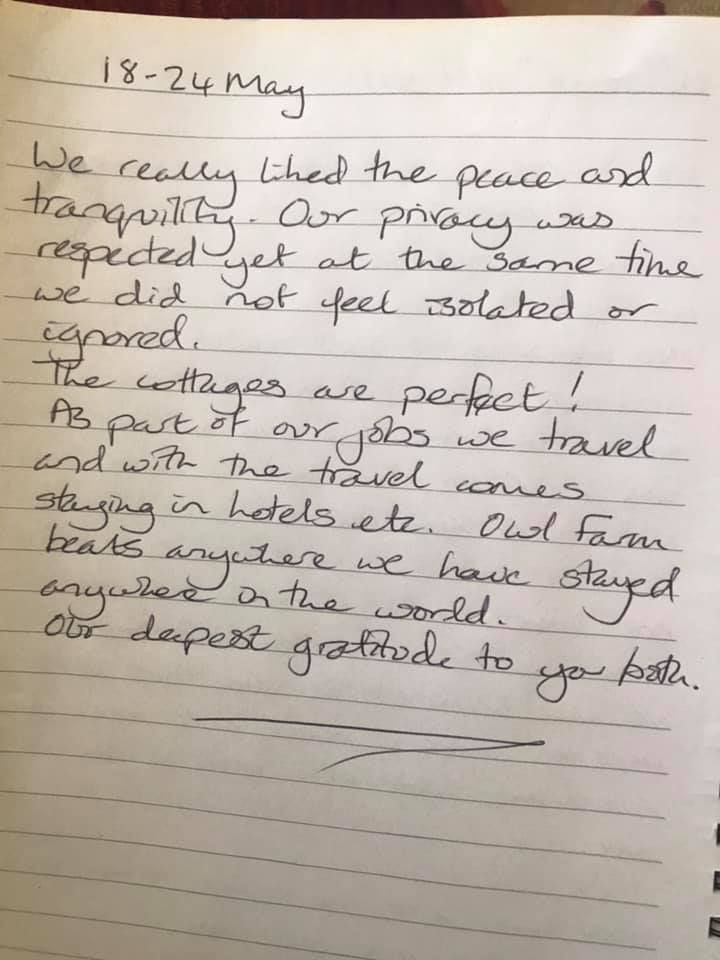 18-24 May
We really liked the peace and
tranquility. Our privacy was
respected yet at the same time
we did not feel isolated or
ignored.
The cottages are perfect!
As part of our jobs we travel
and with the travel comes
staying in hotels etc. Owl Farm
beats anywhere we have stayed
anywhere in the world.
Our deepest gratitude to you both.